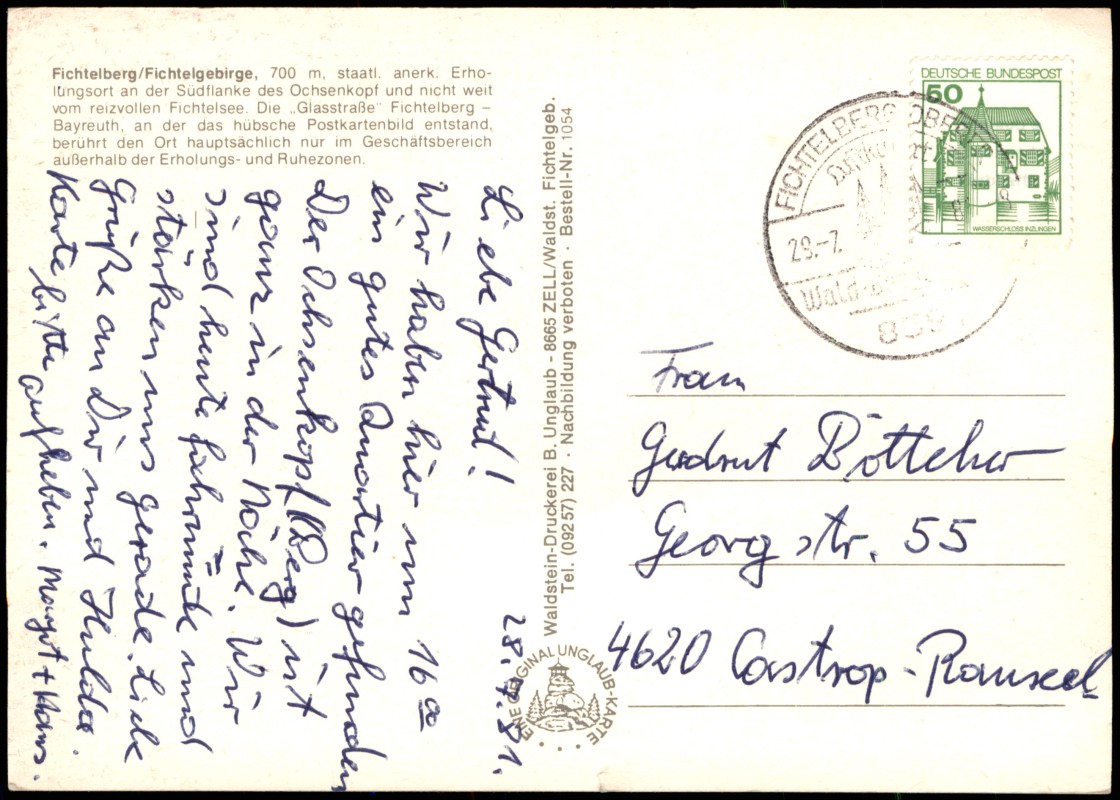 Fichtelberg/Fichtelgebirge, 700 m, staatl. anerk. Erho-
lungsort an der Südflanke des Ochsenkopf und nicht weit
vom reizvollen Fichtelsee. Die „Glasstraße" Fichtelberg –
Bayreuth, an der das hübsche Postkartenbild entstand,
berührt den Ort hauptsächlich nur im Geschäftsbereich
außerhalb der Erholungs- und Ruhezonen.
28.7.81.
Liebe Gertrut!
Wir haben hier um 16 00
ein gutes Quartier gefunden
Der Ochsenkopf (Berg) ist
ganz in der Nähe. Wir
sind heute fahrmüde und
stärken uns gerade. Liebe
Grüße an Dir und Hulda.
Karte bitte aufheben. Margrt + Hans.
Waldstein-Druckerei B. Unglaub - 8665 ZELL/Waldst. Fichtelgeb.
Tel. (09257) 227 · Nachbildung verboten · Bestell-Nr. 1054
EINE ORIGINAL UNGLAUB-KARTE
DEUTSCHE BUNDESPOST
50
WASSERSCHLOSS INZLINGEN
FICHTELBERG, OBERFR
29.-7.
Wald-
Frau
Gerdrut Böttcher
Georgstr. 55
4620 Castrop-Rauxel